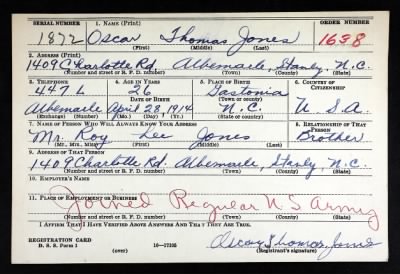 SERIAL NUMBER 1. NAME (Print) ORDER NUMBER
1872 Oscar Thomas Jones 1638
(First) (Middle) (Last)
2. ADDRESS (Print)
1409 Charlotte Rd. Albemarle, Stanly, N.C.
(Number and street or R. F. D. number) (Town) (County) (State)
3. TELEPHONE 4. AGE IN YEARS 5. PLACE OF BIRTH 6. COUNTRY OF CITIZENSHIP
447 L 26 Gastonia
DATE OF BIRTH (Town or county)
Albemarle April 28, 1914 N.C. U.S.A.
(Exchange) (Number) (Mo.) (Day) (Yr.) (State or country)
7. NAME OF PERSON WHO WILL ALWAYS KNOW YOUR ADDRESS 8. RELATIONSHIP OF THAT PERSON
Mr. Roy Lee Jones Brother
(Mr., Mrs., Miss) (First) (Middle) (Last)
9. ADDRESS OF THAT PERSON
1409 Charlotte Rd. Albemarle, Stanly, N.C.
(Number and street or R. F. D. number) (Town) (County) (State)
10. EMPLOYER'S NAME
Joined Regular U S Army
11. PLACE OF EMPLOYMENT OR BUSINESS
(Number and street or R. F. D. number) (Town) (County) (State)
I AFFIRM THAT I HAVE VERIFIED ABOVE ANSWERS AND THAT THEY ARE TRUE.
REGISTRATION CARD
D. S. S. Form 1 16—17105 (over) Oscar Thomas Jones
(Registrant's signature)